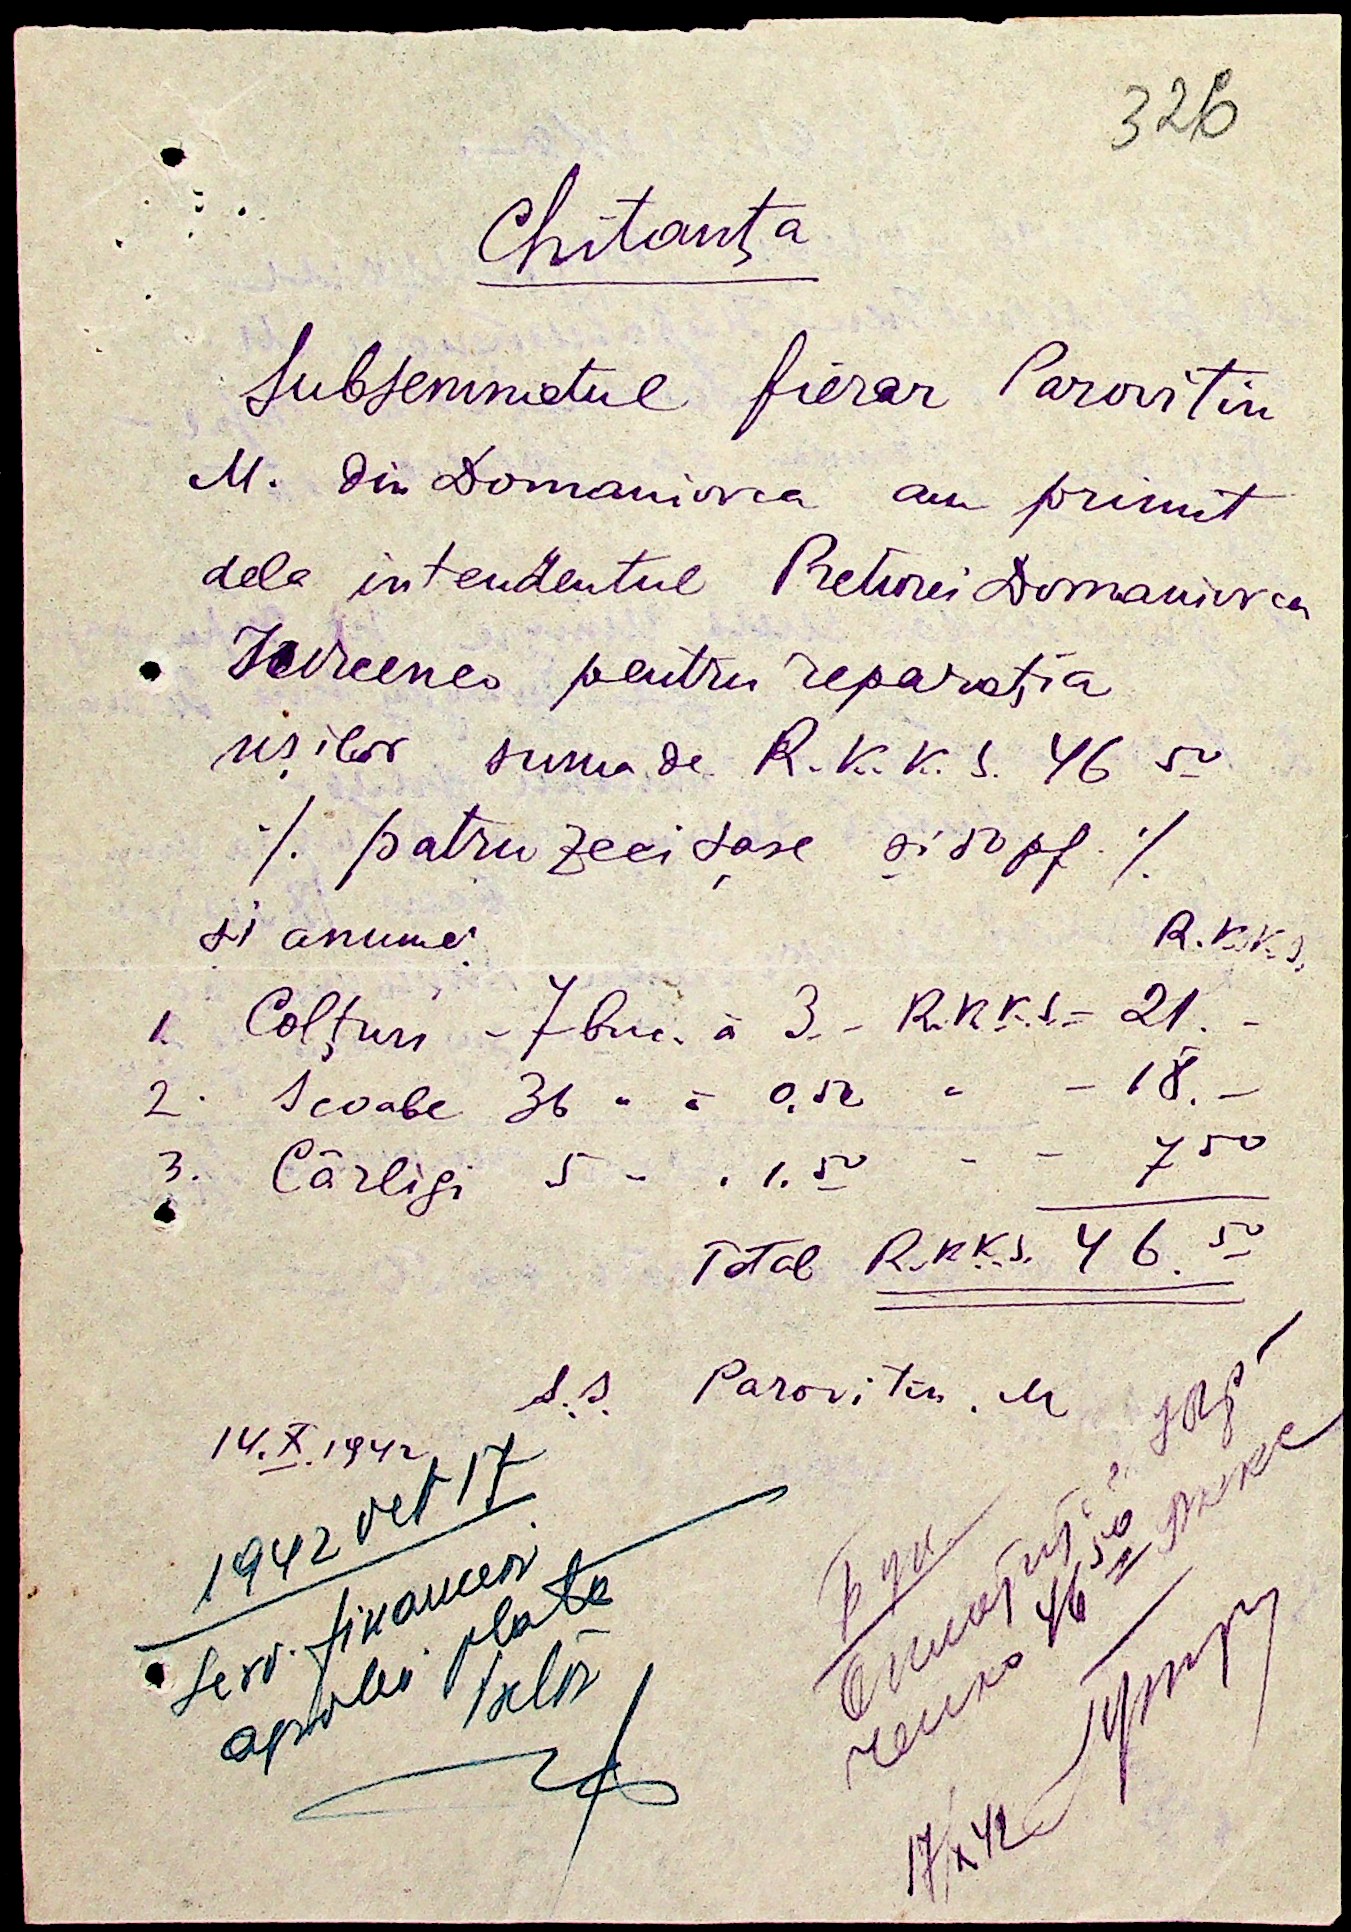 326
Chitanța
Subsemnatul fierar Parovitin
M. din Domaniovca am primit
dela intendentul Preturei Domaniovca
pentru reparația
ușilor suma de R.K.K.S. 46 50
·/. patruzeci șase și 50 pf ·/.
și anume: R.K.K.S.
1. Colțuri - 7 buc. à 3.- R.K.K.S.- 21.-
2. Scoabe 36 " à 0.50 " - 18.-
3. Cârligi 5 - . 1.50 - - 7 50
Total R.K.K.S. 46.50
S.S. Parovitin. M
14.X.1942
1942 Oct 17
Serv. financiar
aprobă plata
46 50
17/X 42